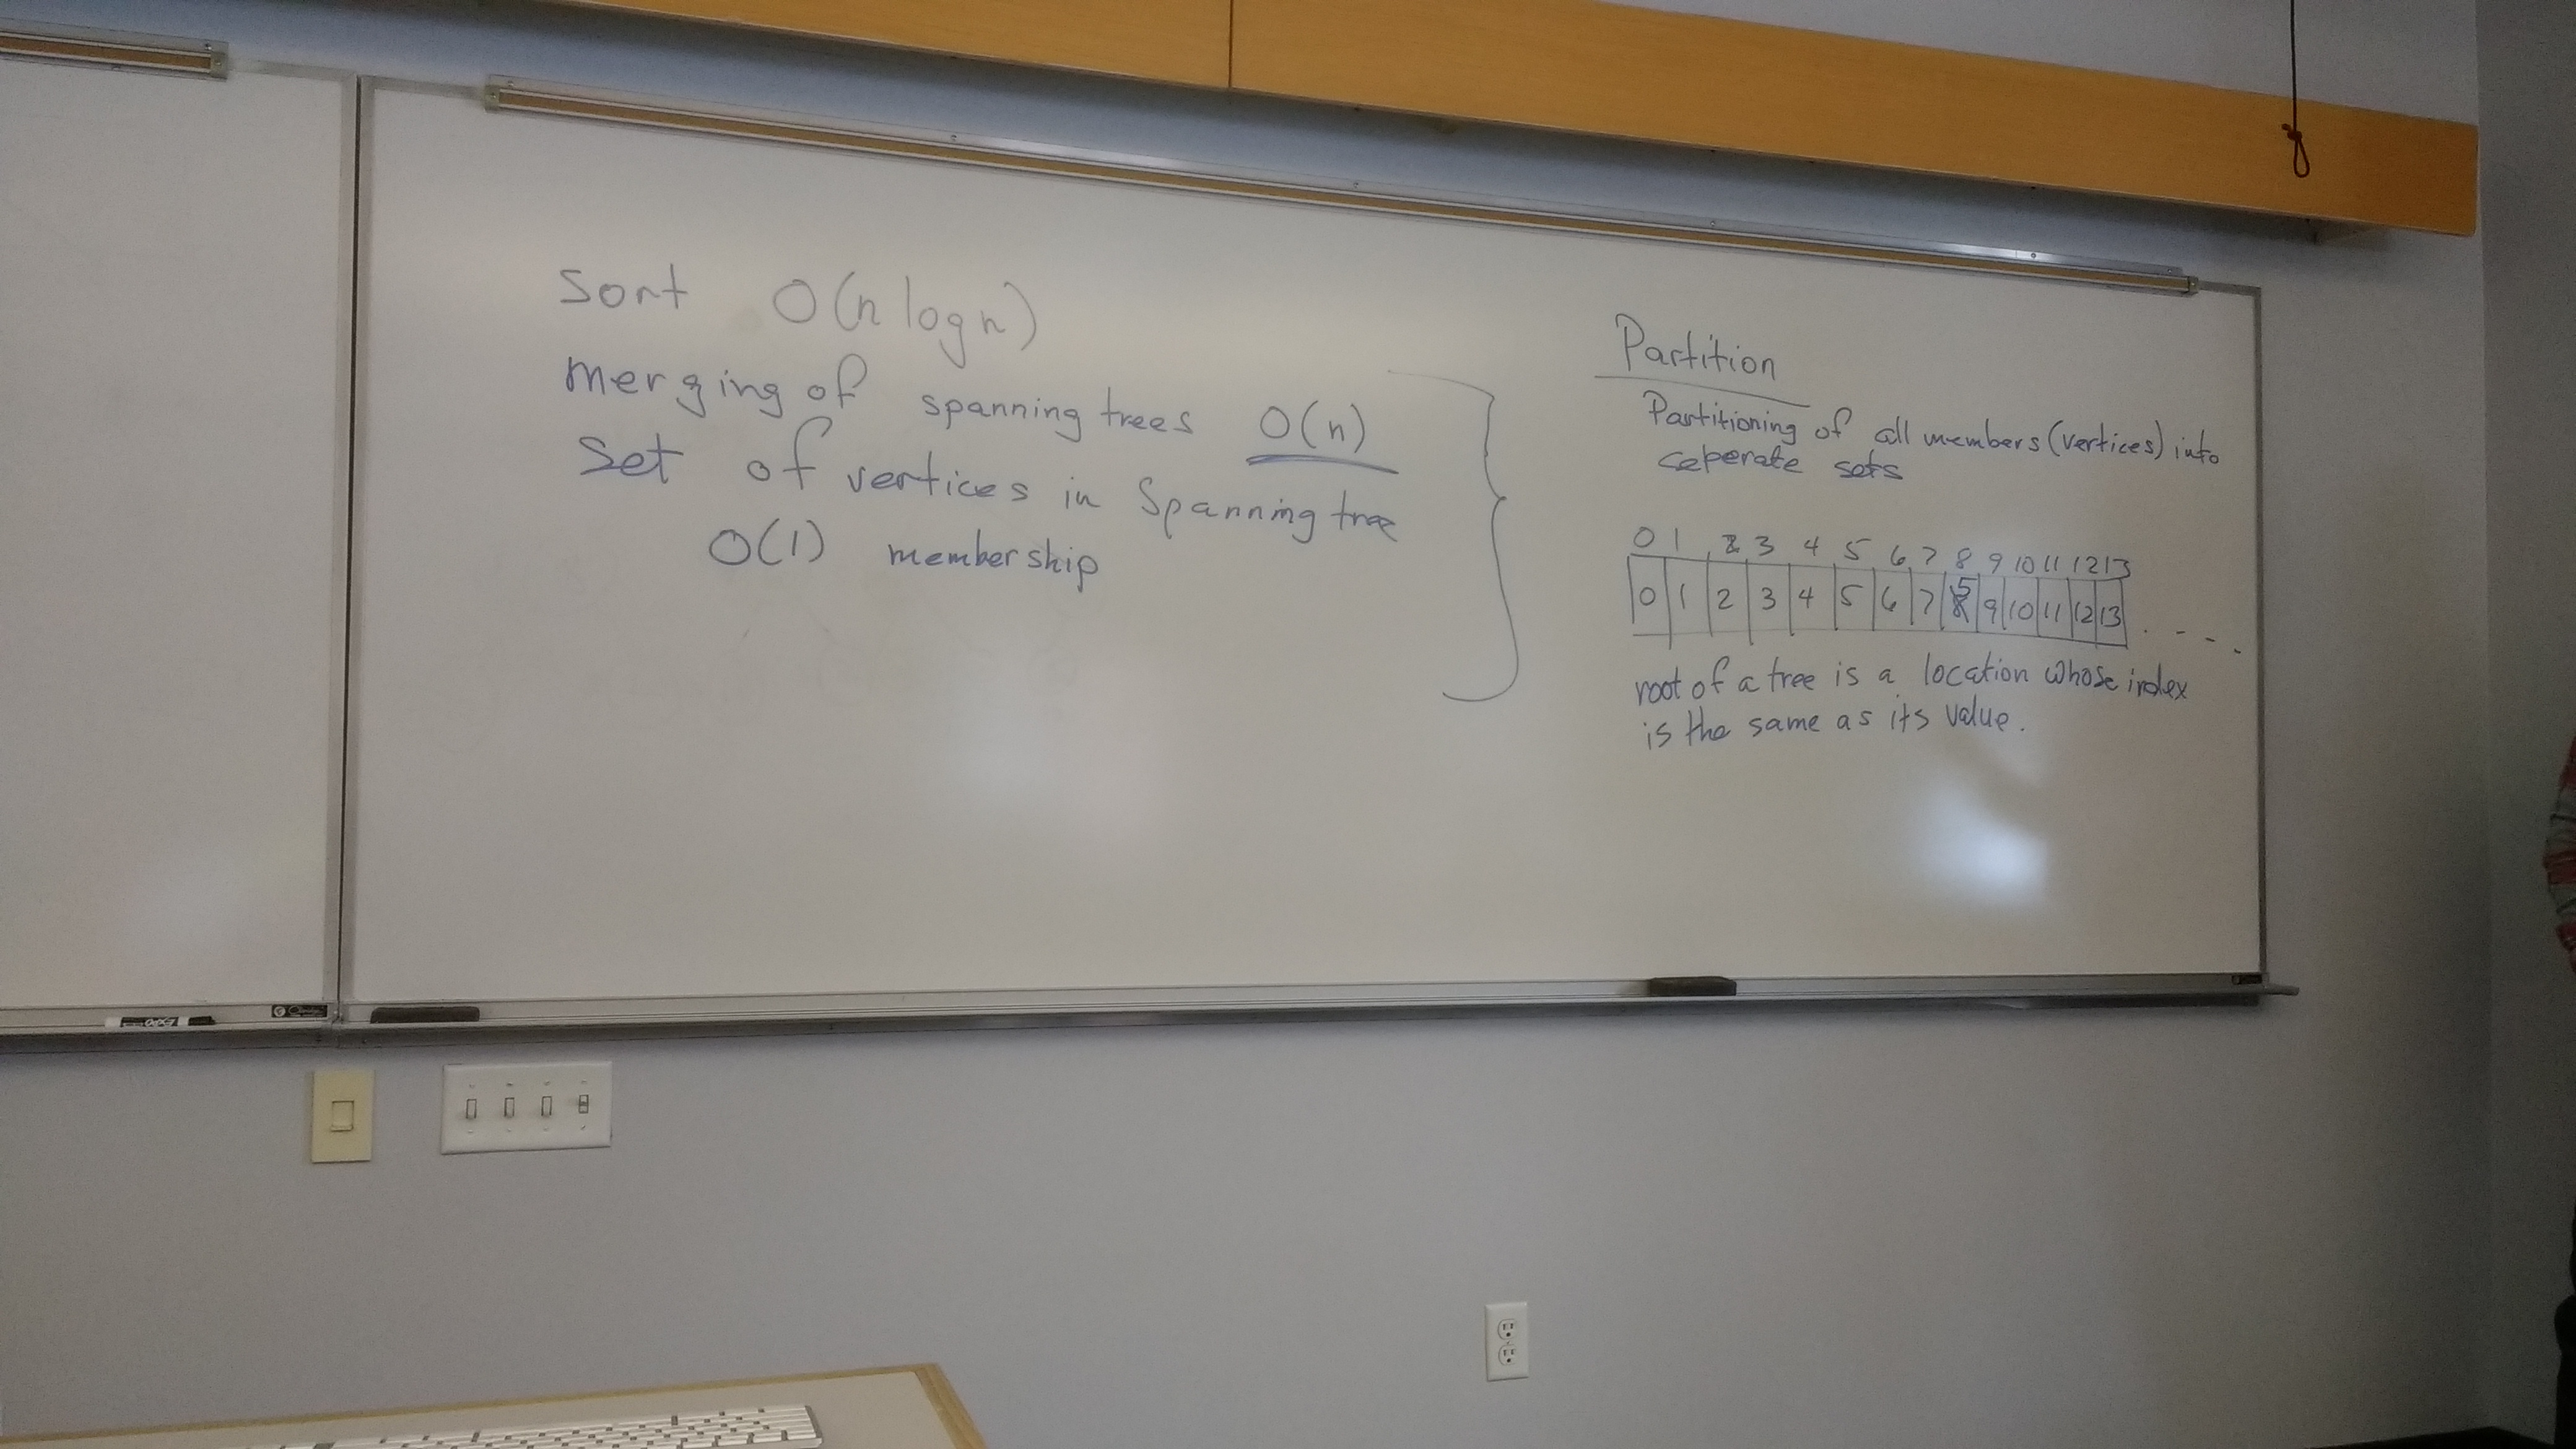 sort O(n log n)
merging of spanning trees O(n)
Set of vertices in Spanning tree
O(1) membership
Partition
Partitioning of all members (vertices) into
seperate sets
0 1 2 3 4 5 6 7 8 9 10 11 12 13
0 1 2 3 4 5 6 7 5 9 10 11 12 13 . - - .
root of a tree is a location whose index
is the same as its value.
EXPO